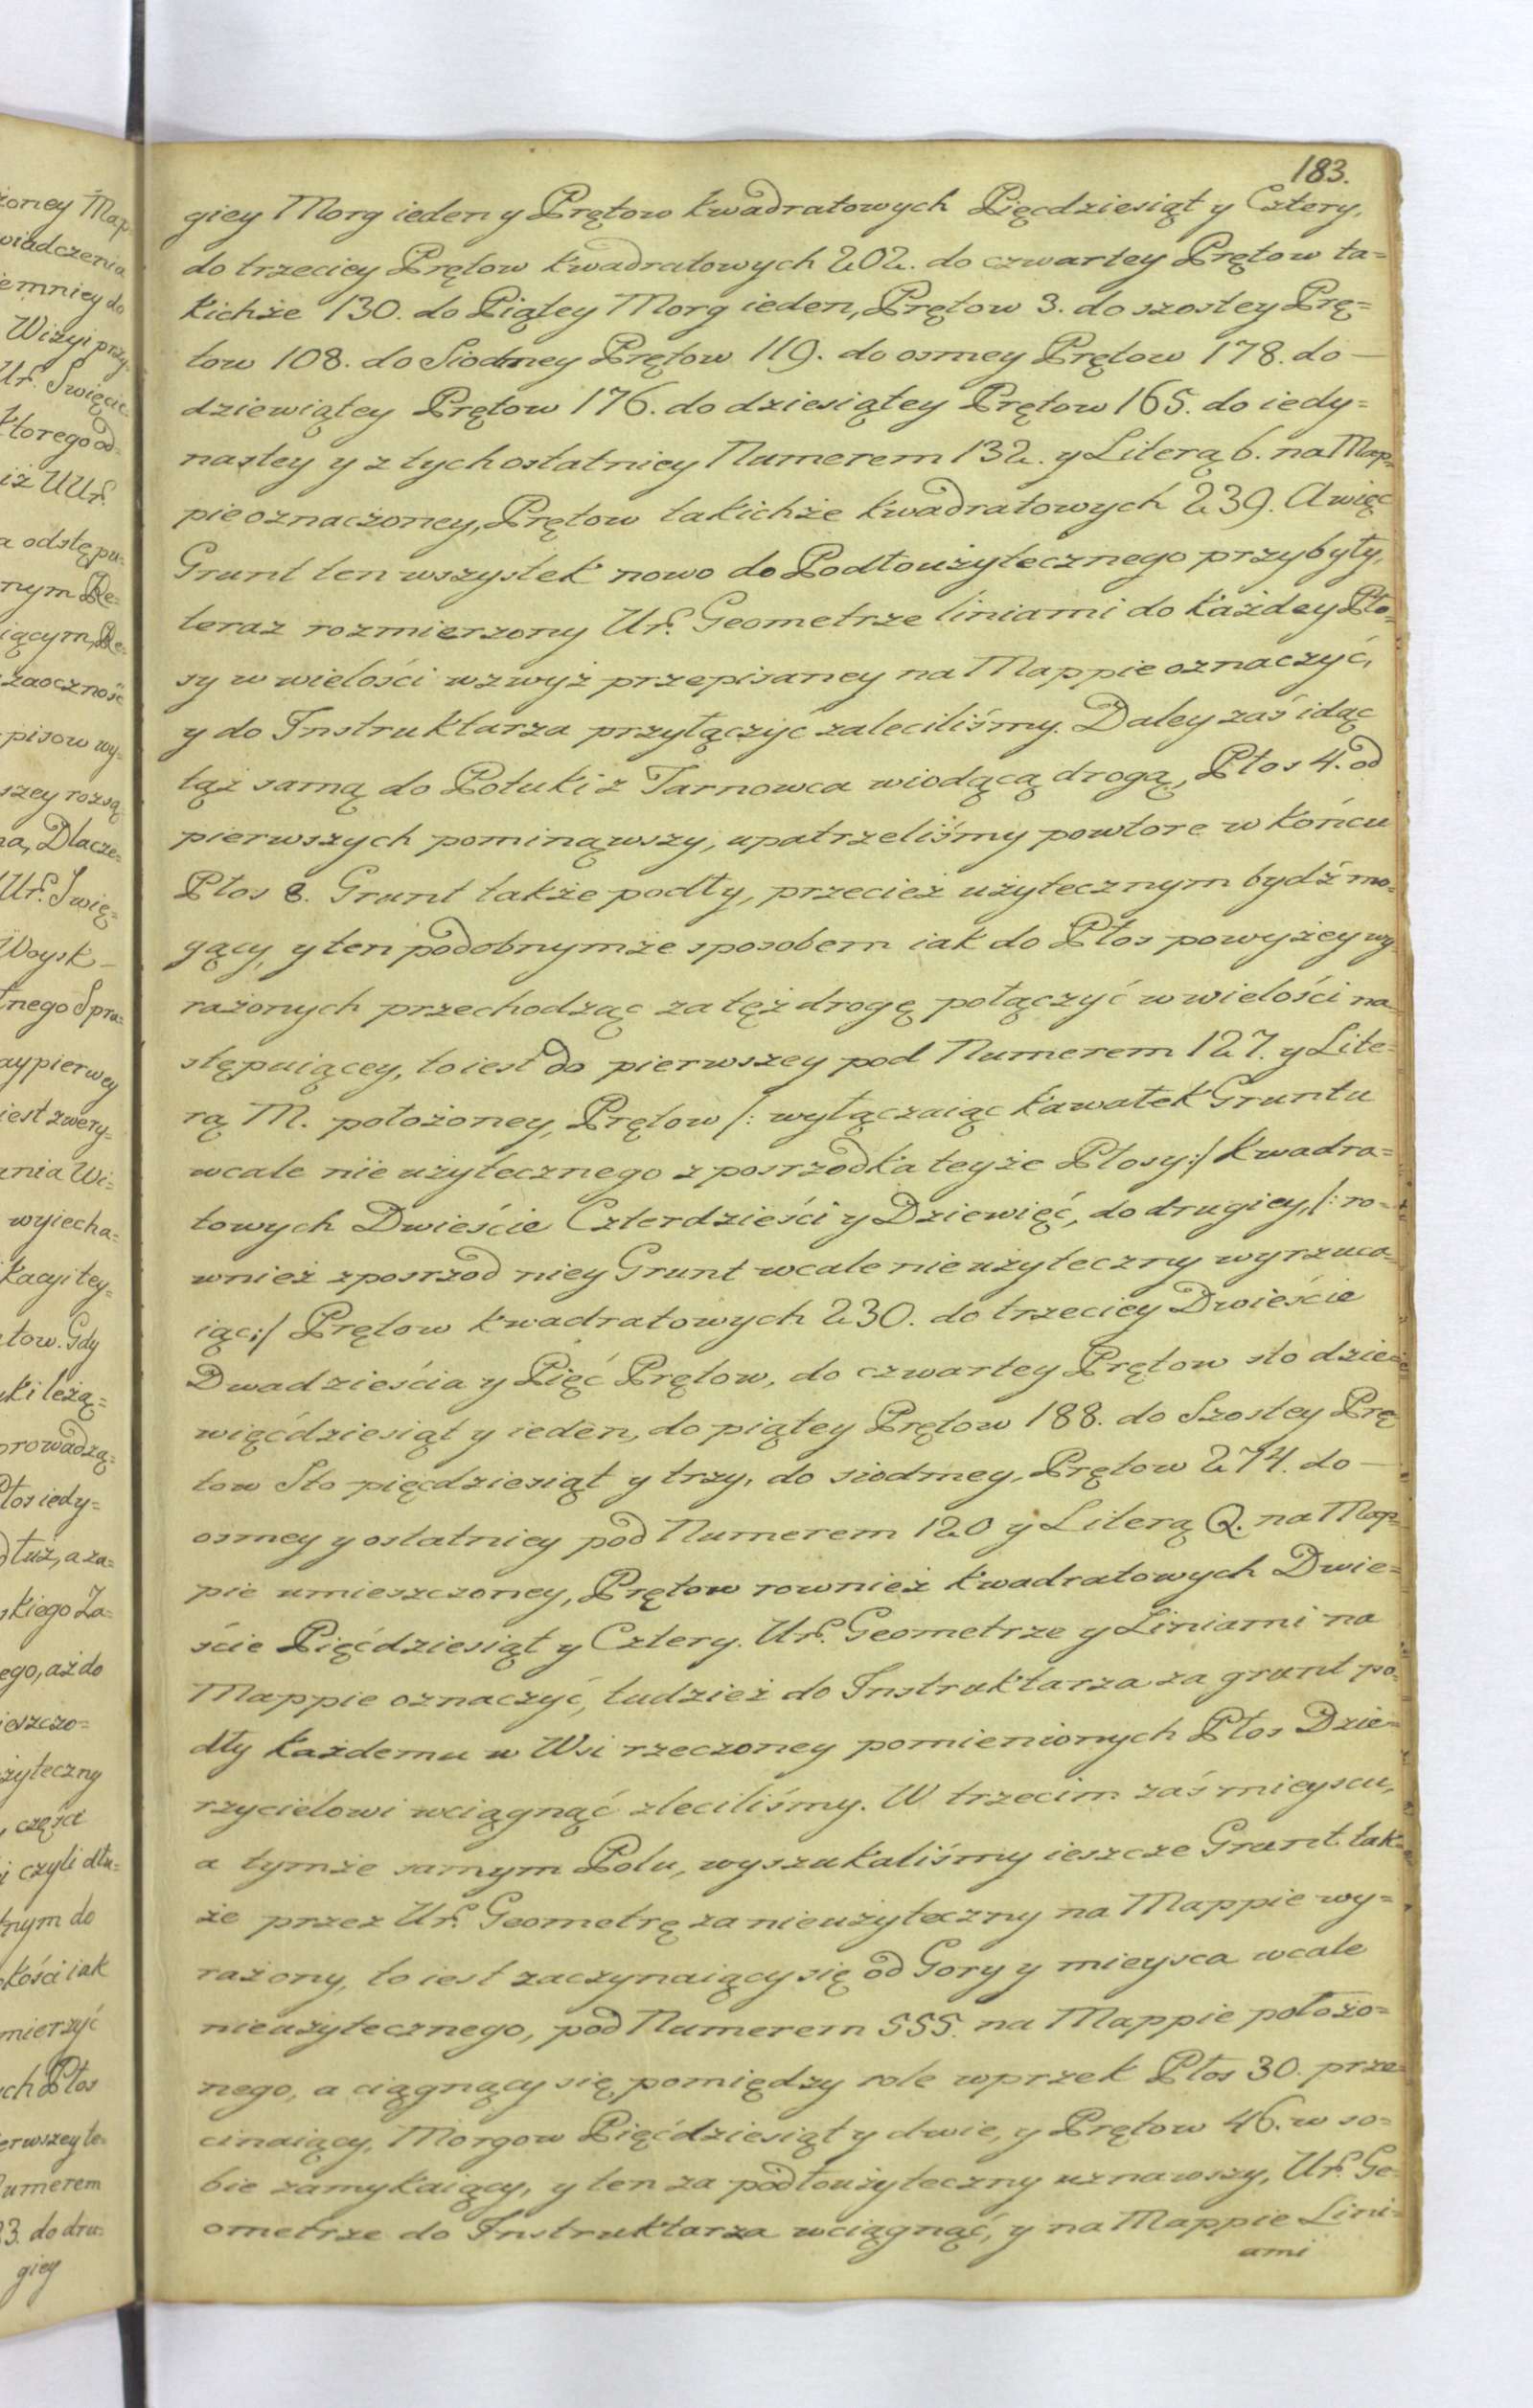 183.
giey Morg ieden y Prętow kwadratowych Pięcdziesiąt y Cztery,
do trzeciey Prętow kwadratowych 202. do czwartey Prętow ta=
kichże 130. do Piątey Morg ieden, Prętow 3. do szostey Prę=
tow 108. do Siodmey Prętow 119. do osmey Prętow 178. do —
dziewiątey Prętow 176. do dziesiątey Prętow 165. do iedy=
nastey y z tych ostatniey Numerem 132. y Literą b. na Map=
pie oznaczoney, Prętow takichże kwadratowych 239. A więc
Grunt ten wszystek nowo do Podłoużytecznego przybyły,
teraz rozmierzony Ur. Geometrze liniami do każdey Pło=
sy w wielości wzwyż przepisaney na Mappie oznaczyć,
y do Instruktarza przyłączyć zaleciliśmy. Daley zaś idąc
tąż samą do Połuki z Tarnowca wiodącą drogą, Płos 4. od
pierwszych pominąwszy, upatrzeliśmy powtore w końcu
Płos 8. Grunt także podły, przecież użytecznym bydź mo=
gący, y ten podobnymże sposobem iak do Płos powyżey wy=
rażonych przechodząc za tęż drogę połączyć w wielości na=
stępuiącey, to iest do pierwszey pod Numerem 127. y Lite=
rą M. położoney, Prętow /: wyłączaiąc kawałek Gruntu
wcale nieużytecznego z posrzodka teyże Płosy :/ kwadra=
towych Dwieście Czterdzieści y Dziewięć, do drugiey, /: ro=
wnież zposrzod niey Grunt wcale nieużyteczny wyrzuca=
iąc :/ Prętow kwadratowych 230. do trzeciey Dwieście
Dwadzieścia y Pięć Prętow, do czwartey Prętow sto dzie=
więćdziesiąt y ieden, do piątey Prętow 188. do Szostey Prę=
tow Sto pięcdziesiąt y trzy, do siodmey, Prętow 274. do —
osmey y ostatniey pod Numerem 120 y Literą Q. na Map=
pie umieszczoney, Prętow rownież kwadratowych Dwie=
ście Pięćdziesiąt y Cztery. Ur. Geometrze y Liniami na
Mappie oznaczyć, tudzież do Instruktarza za grunt po=
dły każdemu w Wsi rzeczoney pomienionych Płos Dzie=
rzycielowi wciągnąć zleciliśmy. W trzecim zaś mieyscu,
a tymże samym Polu, wyszukaliśmy ieszcze Grunt tak=
że przez Ur. Geometrę za nieużyteczny na Mappie wy=
rażony, to iest zaczynaiący się od Gory y mieysca wcale
nieużytecznego, pod Numerem 555. na Mappie położo=
nego, a ciągnący się pomiędzy role wprzek Płos 30. prze=
cinaiący, Morgow Pięćdziesiąt y dwie, y Prętow 46. w so=
bie zamykaiący, y ten za podłoużyteczny uznawszy, Ur. Ge=
ometrze do Instruktarza wciągnąć, y na Mappie Lini=
ami